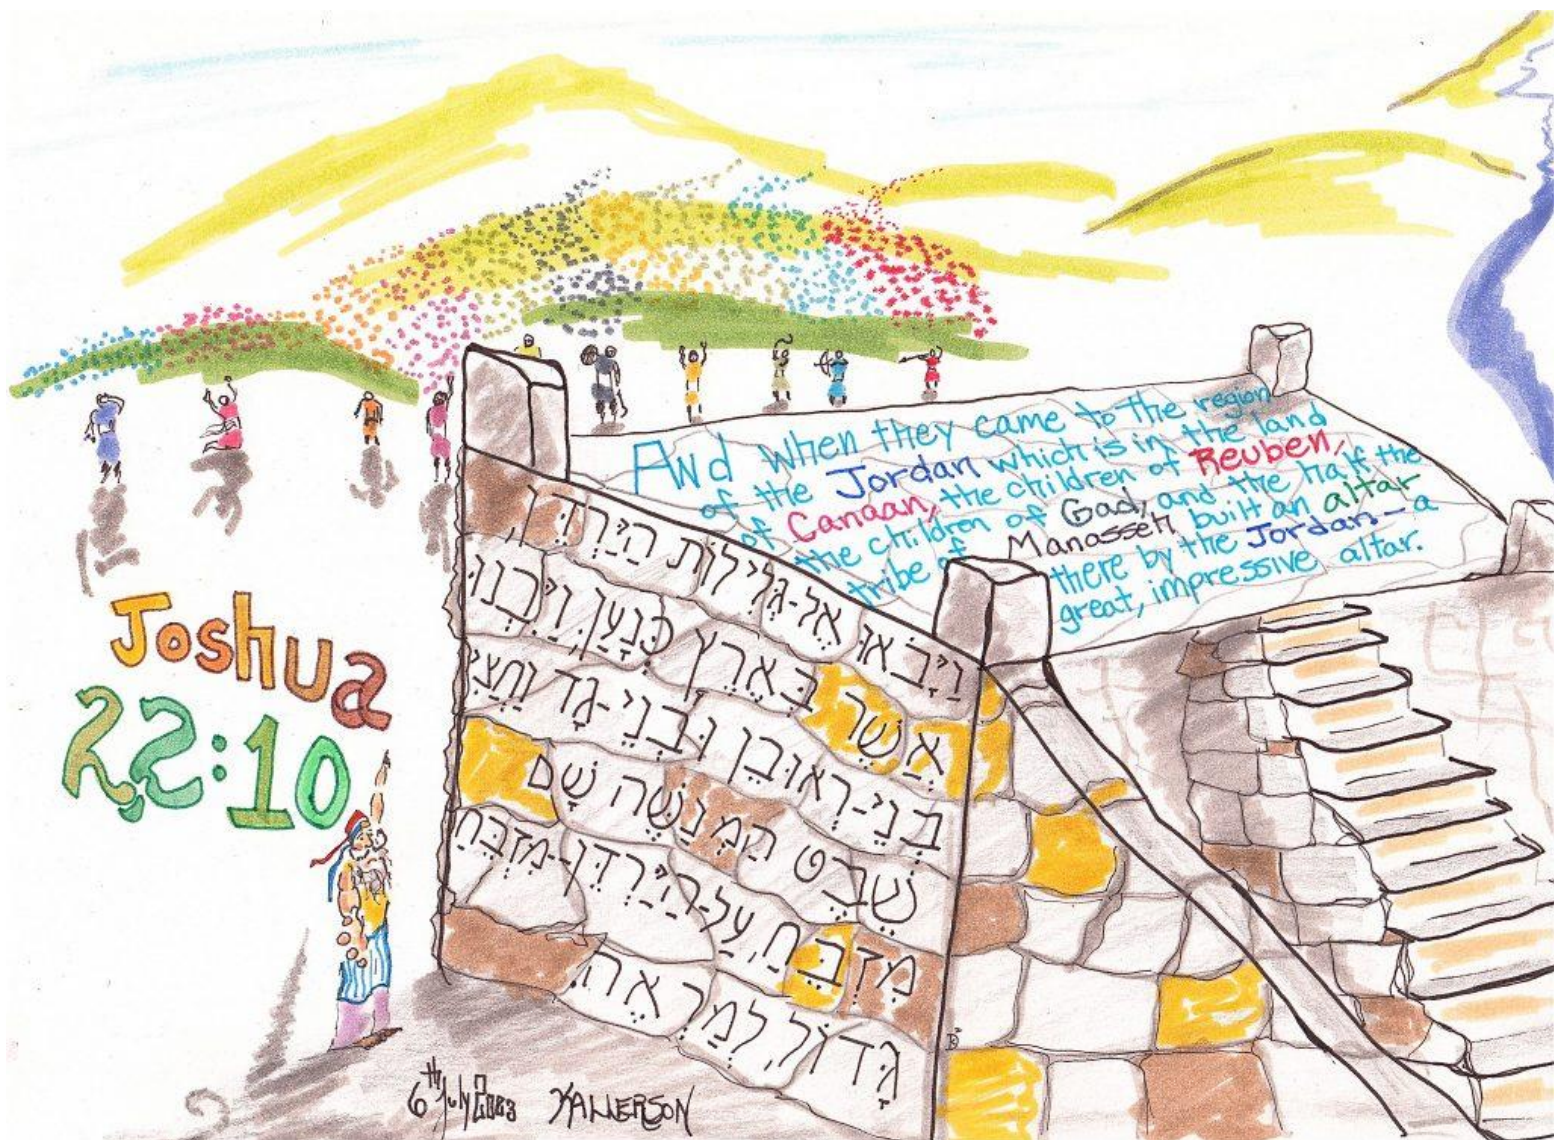 And when they came to the region
of the Jordan which is in the land
of Canaan, the children of Reuben,
the children of Gad, and the half the
tribe of Manasseh built an altar
there by the Jordan – a
great, impressive altar.
וַיָּבֹאוּ אֶל-גְּלִילוֹת הַיַּרְדֵּן,
אֲשֶׁר בְּאֶרֶץ כְּנָעַן, וַיִּבְנוּ
בְנֵי-רְאוּבֵן וּבְנֵי-גָד וַחֲצִי
שֵׁבֶט הַמְנַשֶּׁה שָׁם
מִזְבֵּחַ, עַל-הַיַּרְדֵּן--מִזְבֵּחַ
גָּדוֹל, לְמַרְאֶה.
Joshua
22:10
6th July 2023 KALLERSON